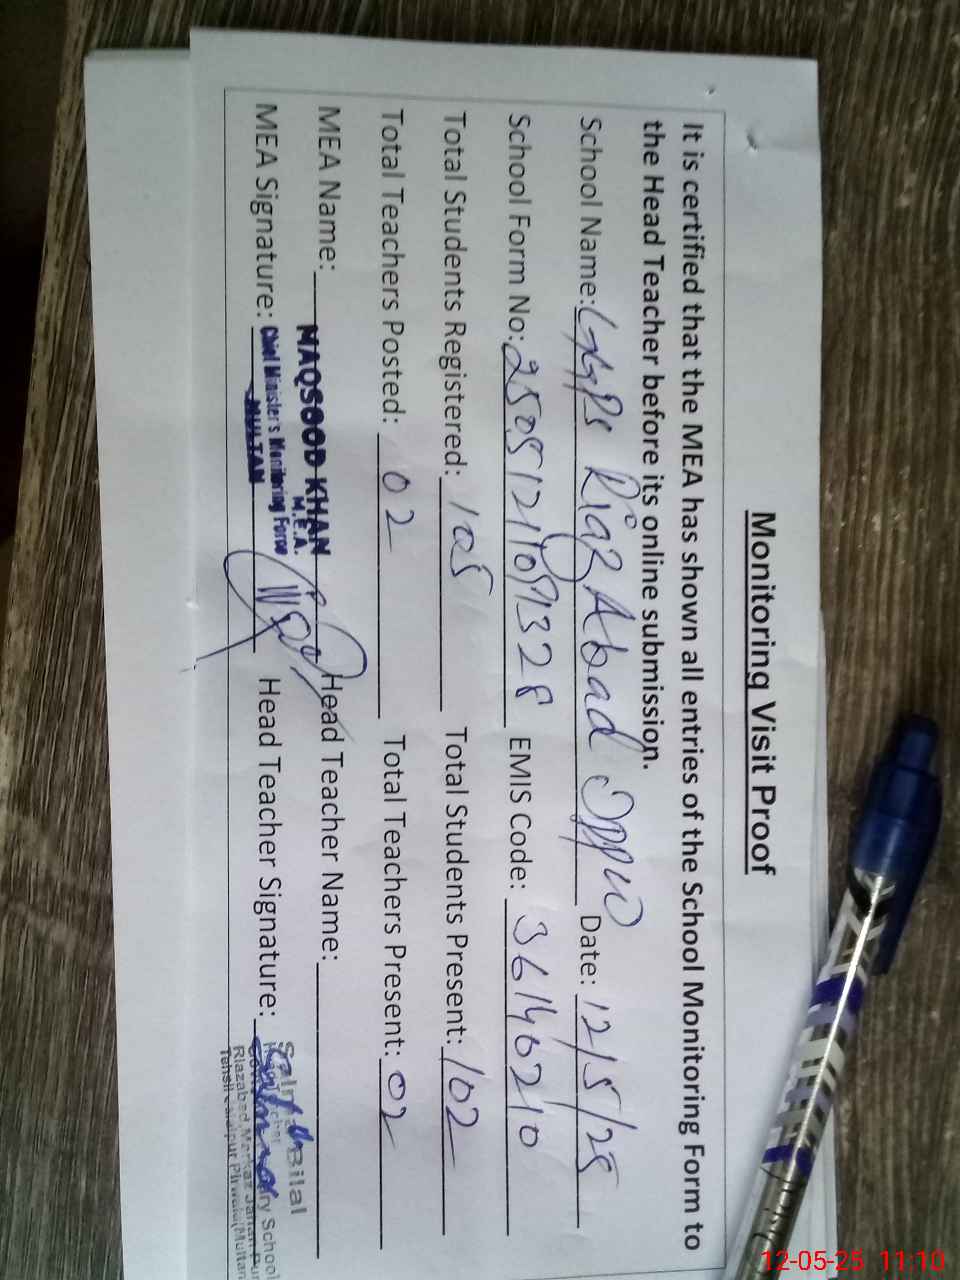 Monitoring Visit Proof
It is certified that the MEA has shown all entries of the School Monitoring Form to
the Head Teacher before its online submission.
School Name: GGPS Riaz Abad Oppo Date: 12/5/25
School Form No: EMIS Code: 36140210
Total Students Registered: 105 Total Students Present: 102
Total Teachers Posted: 02 Total Teachers Present: 02
MEA Name: MAQSOOD KHAN Head Teacher Name:
M.E.A.
MEA Signature: Chief Minister's Monitoring Force Head Teacher Signature:
MULTAN
Bilal
School
Riazabad Markaz
Tehsil Jalalpur Pirwala (Multan
12-05-25 11:10